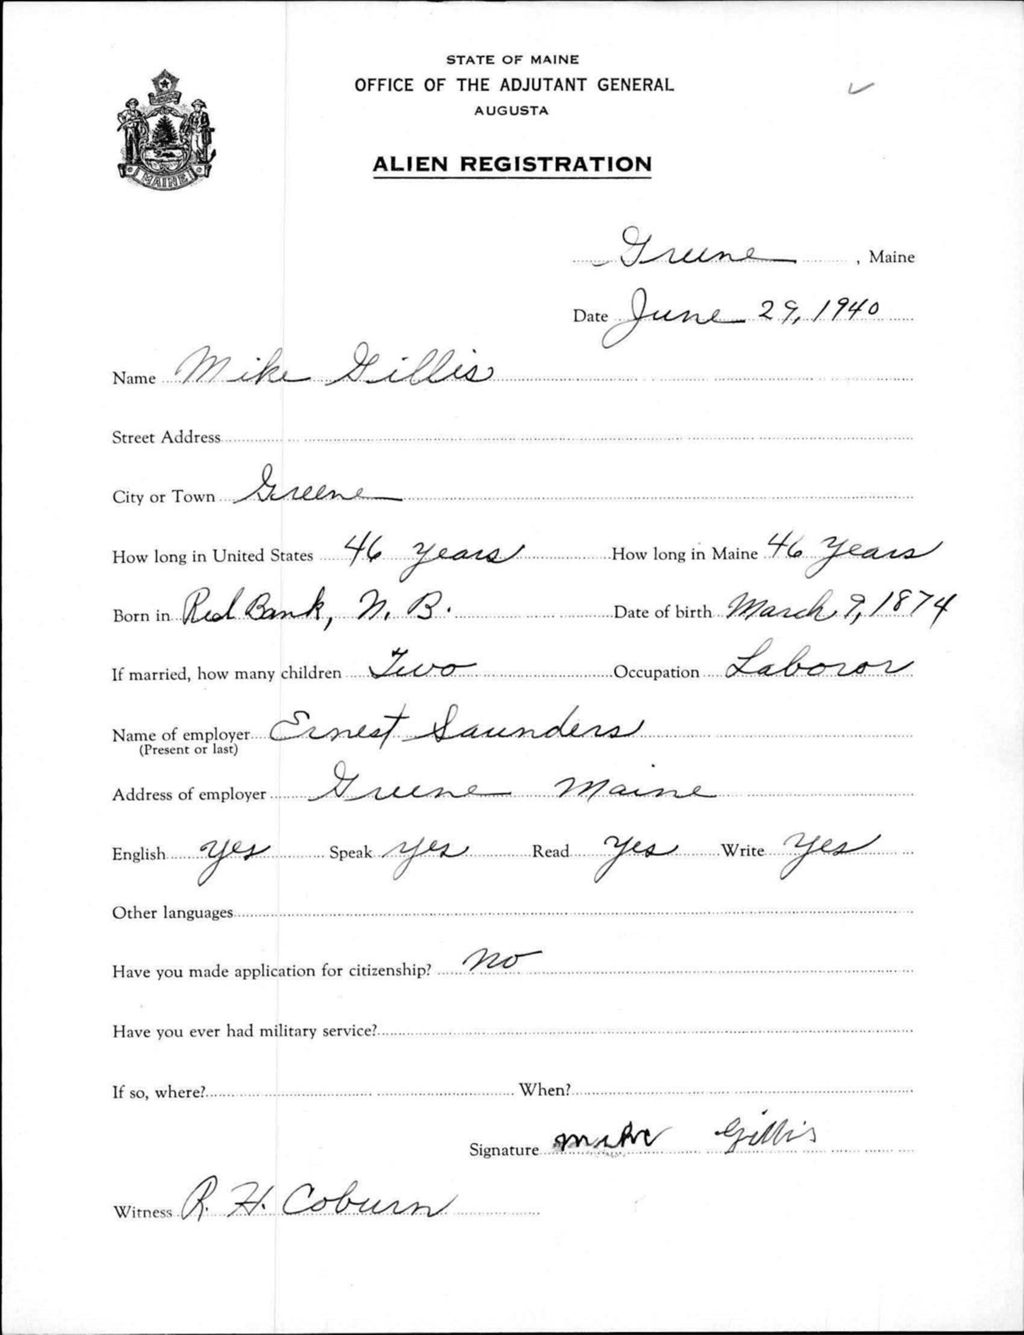 STATE OF MAINE
OFFICE OF THE ADJUTANT GENERAL
AUGUSTA
ALIEN REGISTRATION
MAINE
Greene, Maine
Date June 29, 1940
Name Mike Gillis
Street Address
City or Town Greene
How long in United States 46 years How long in Maine 46 Years
Born in Red Bank, N. B. Date of birth March 9, 1874
If married, how many children Two Occupation Laboror
Name of employer Ernest Saunders
(Present or last)
Address of employer Greene Maine
English yes Speak yes Read yes Write yes
Other languages
Have you made application for citizenship? no
Have you ever had military service?
If so, where? When?
Signature Mike Gillis
Witness R. H. Coburn